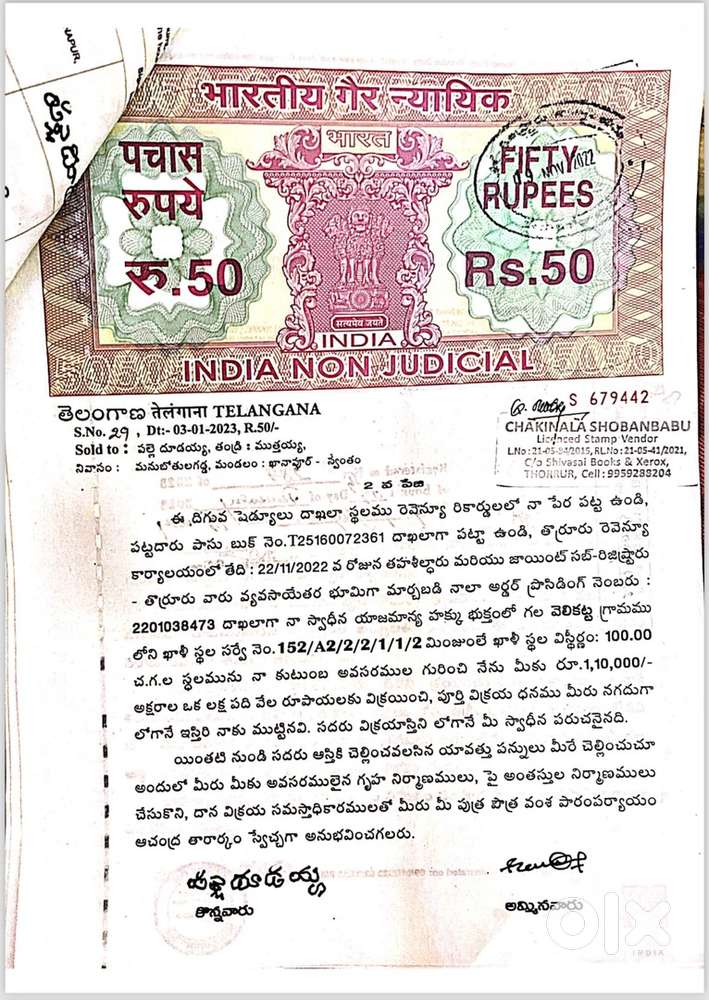 NAPUR.
भारतीय गैर न्यायिक
भारत
पचास
रुपये
FIFTY
RUPEES
NOV 2022
रु.50
Rs.50
सत्यमेव जयते
INDIA
INDIA NON JUDICIAL
S 679442
తెలంగాణ तेलंगाना TELANGANA
S.No. 29, Dt:- 03-01-2023, R.50/-
Sold to : వల్లె దూడయ్య, తండ్రి : ముత్తయ్య,
నివాసం : మనుబోతులగడ్డ, మండలం : ఖానాపూర్ - స్వంతం
CHAKINALA SHOBANBABU
Licenced Stamp Vendor
L.No:21-05-84/2015, RL.No:21-05-41/2021,
C/o Shivasai Books & Xerox,
THORRUR, Cell: 9959288204
2 వ పేజి
ఈ దిగువ షెడ్యూలు దాఖలా స్థలము రెవెన్యూ రికార్డులలో నా పేర పట్ట ఉండి,
పట్టదారు పాసు బుక్ నెం.T25160072361 దాఖలాగా పట్టా ఉండి, తొర్రూరు రెవెన్యూ
కార్యాలయంలో తేది : 22/11/2022 వ రోజున తహశీల్ధారు మరియు జాయింట్ సబ్-రిజిష్ట్రారు
- తొర్రూరు వారు వ్యవసాయేతర భూమిగా మార్చబడి నాలా అర్డర్ ప్రొసిడింగ్ నెంబరు :
2201038473 దాఖలాగా నా స్వాధీన యాజమాన్య హక్కు భుక్తంలో గల వెలికట్ట గ్రామము
లోని ఖాళీ స్థల సర్వే నెం.152/A2/2/2/1/1/2 మింజుంలే ఖాళీ స్థల విస్తీర్ణం: 100.00
చ.గ.ల స్థలమును నా కుటుంబ అవసరముల గురించి నేను మీకు రూ.1,10,000/-
అక్షరాల ఒక లక్ష పది వేల రూపాయలకు విక్రయించి, పూర్తి విక్రయ ధనము మీరు నగదుగా
లోగానే ఇస్తిరి నాకు ముట్టినవి. సదరు విక్రయాస్తిని లోగానే మీ స్వాధీన పరుచనైనది.
యింతటి నుండి సదరు ఆస్తికి చెల్లించవలసిన యావత్తు పన్నులు మీరే చెల్లించుచూ
అందులో మీరు మీకు అవసరములైన గృహ నిర్మాణములు, పై అంతస్తుల నిర్మాణములు
చేసుకొని, దాన విక్రయ సమస్తాధికారములతో మీరు మీ పుత్ర పౌత్ర వంశ పారంపర్యాయం
ఆచంద్ర తారార్కం స్వేచ్ఛగా అనుభవించగలరు.
కొన్నవారు
అమ్మినవారు
olx
INDIA